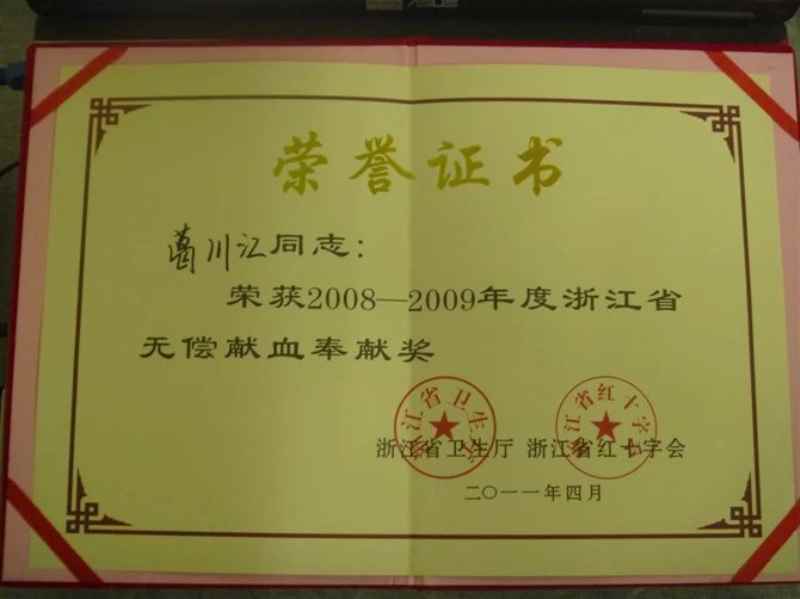 荣誉证书
葛川江同志：
荣获2008—2009年度浙江省
无偿献血奉献奖
浙江省卫生厅
浙江省红十字会
浙江省卫生厅 浙江省红十字会
二〇一一年四月